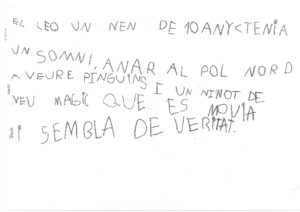 EL LEO UN NEN DE 10 ANYCTENIA
UN SOMNI, ANAR AL POL NORD
A VEURE PINGUINS I UN NINOT DE
VEU MAGIC QUE ES MOVIA
I SEMBLA DE VERITAT.